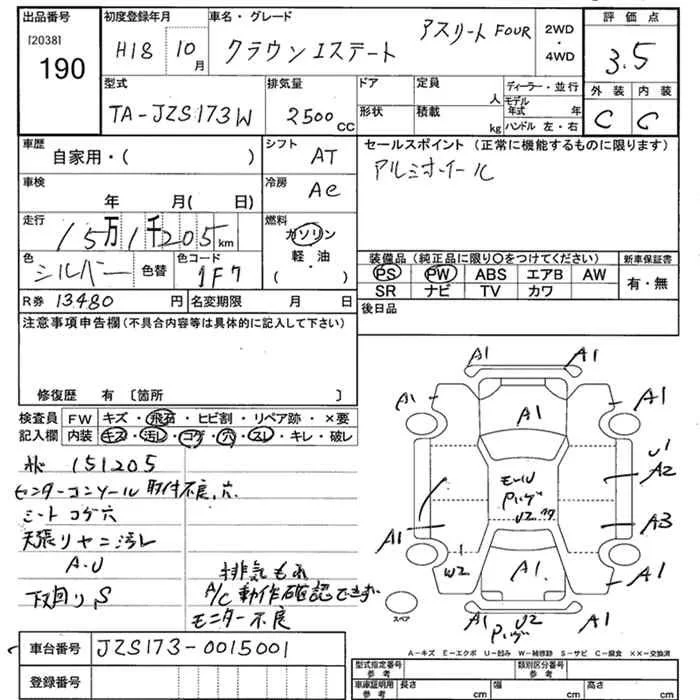 出品番号
[2038]
190
初度登録年月
H18 10月
車名・グレード
クラウンエステート アスリート FOUR
2WD
・
4WD
評価点
3.5
外装 内装
C C
型式
TA-JZS173W
排気量
2500cc
ドア
形状
定員 人
積載 kg
ディーラー・並行
モデル年式 年
ハンドル 左・右
車歴
自家用・( )
シフト
AT
車検
年 月( 日)
冷房
AC
走行
15万1千205km
燃料
ガソリン
軽油
・
( )
色
シルバー
色替
色コード
1F7
R券 13480円
名変期限 月 日
セールスポイント (正常に機能するものに限ります)
アルミホイール
装備品 (純正品に限り○をつけてください)
PS PW ABS エアB AW
SR ナビ TV カワ
新車保証書
有・無
後日品
注意事項申告欄(不具合内容等は具体的に記入して下さい)
修復歴 有 〔箇所 〕
検査員記入欄
FW キズ・飛石・ヒビ割・リペア跡・×要
内装 キズ・汚レ・コゲ・穴・スレ・キレ・破レ
151205
センターコンソール 取付不良、穴
シートコゲ穴
天張リヤニ汚レ
A・U
下回りS
排気もれ
A/C動作確認できず
モニター不良
A1 A1
A1 A1 A1
U1
A2
モール
U2
A1 A3
W2 A1 A1
A1 U2 A1
スペア
A-キズ E-エクボ U-凹み W-補修跡 S-サビ C-腐食 ××-交換済
車台番号 JZS173-0015001
登録番号
型式指定番号
参考
類別区分番号
参考
車庫証明用
参考
長さ cm
幅 cm
高さ cm